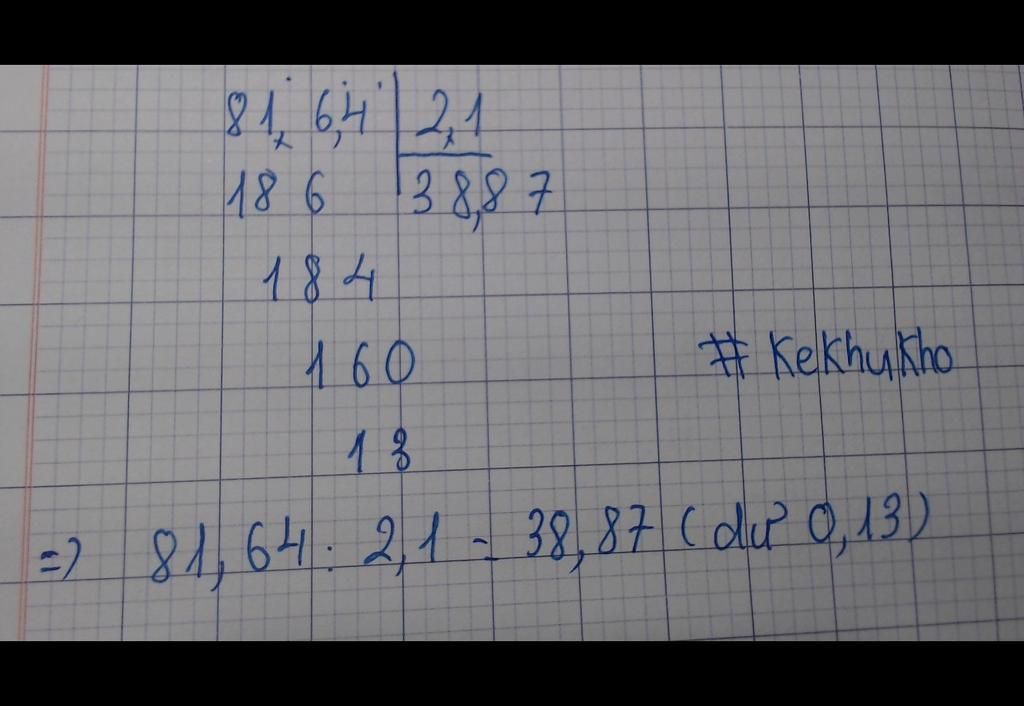 81,6,4 2,1
186 38,87
184
160
# KeKhuKho
13
=) 81,64 : 2,1 = 38,87 (dư 0,13)